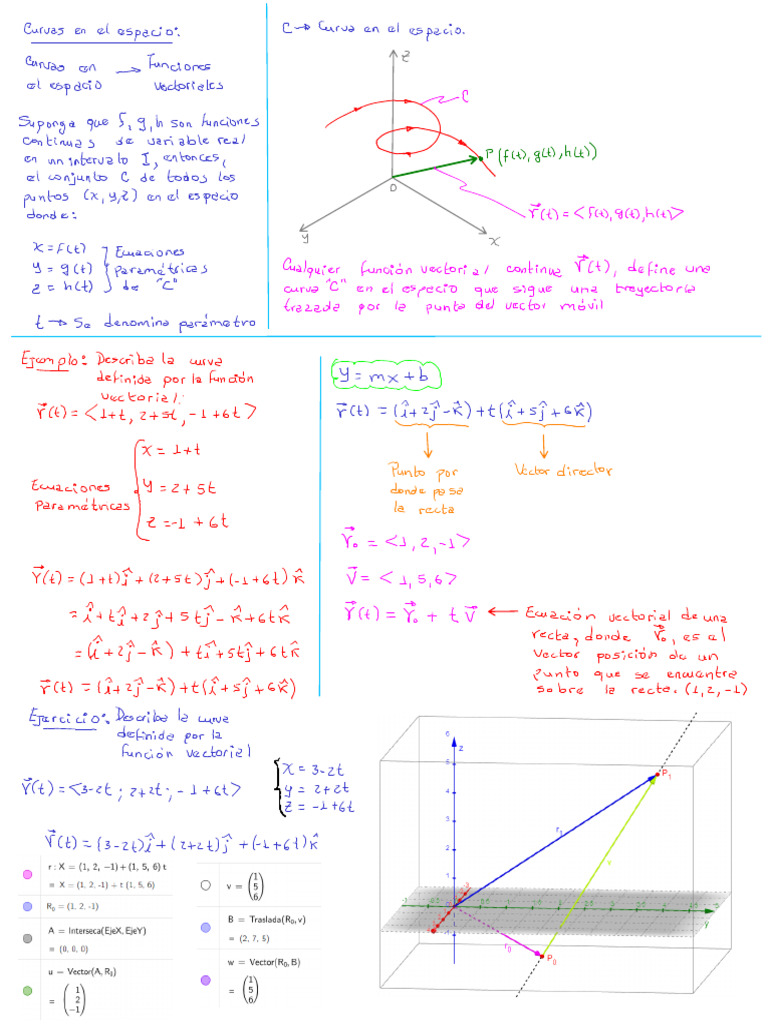 Curvas en el espacio:
Curvas en el espacio → Funciones vectoriales
Suponga que f, g, h son funciones
continuas de variable real
en un intervalo I, entonces,
el conjunto C de todos los
puntos (x, y, z) en el espacio
donde:
x = f(t)
y = g(t)
z = h(t)
Ecuaciones
Paramétricas
de "C"
t → Se denomina parámetro
C → Curva en el espacio.
z
C
P (f(t), g(t), h(t))
O
r⃗(t) = <f(t), g(t), h(t)>
y
x
Cualquier función vectorial continua r⃗(t), define una
curva "C" en el espacio que sigue una trayectoria
trazada por la punta del vector móvil
Ejemplo: Describa la curva
definida por la función
vectorial:
r⃗(t) = <1+t, 2+5t, -1+6t>
Ecuaciones
Paramétricas
x = 1+t
y = 2+5t
z = -1+6t
r⃗(t) = (1+t)î + (2+5t)ĵ + (-1+6t)k̂
= î + tî + 2ĵ + 5tĵ - k̂ + 6tk̂
= (î + 2ĵ - k̂) + tî + 5tĵ + 6tk̂
r⃗(t) = (î + 2ĵ - k̂) + t(î + 5ĵ + 6k̂)
y = mx + b
r⃗(t) = (î + 2ĵ - k̂) + t(î + 5ĵ + 6k̂)
Punto por
donde pasa
la recta
Vector director
r⃗₀ = <1, 2, -1>
v⃗ = <1, 5, 6>
r⃗(t) = r⃗₀ + t v⃗ ← Ecuación vectorial de una
recta, donde r⃗₀, es el
vector posición de un
punto que se encuentre
sobre la recta. (1, 2, -1)
Ejercicio: Describa la curva
definida por la
función vectorial
r⃗(t) = <3-2t ; 2+2t ; -1+6t>
x = 3-2t
y = 2+2t
z = -1+6t
r⃗(t) = (3-2t)î + (2+2t)ĵ + (-1+6t)k̂
r : X = (1, 2, −1) + (1, 5, 6) t
= X = (1, 2, -1) + t (1, 5, 6)
R₀ = (1, 2, -1)
A = Interseca(EjeX, EjeY)
= (0, 0, 0)
u = Vector(A, R₀)
= (1 2 −1)
v = (1 5 6)
B = Traslada(R₀, v)
= (2, 7, 5)
w = Vector(R₀, B)
= (1 5 6)
6
z
5
4
3
2
1
P₁
r₁
v
r₀
P₀
y